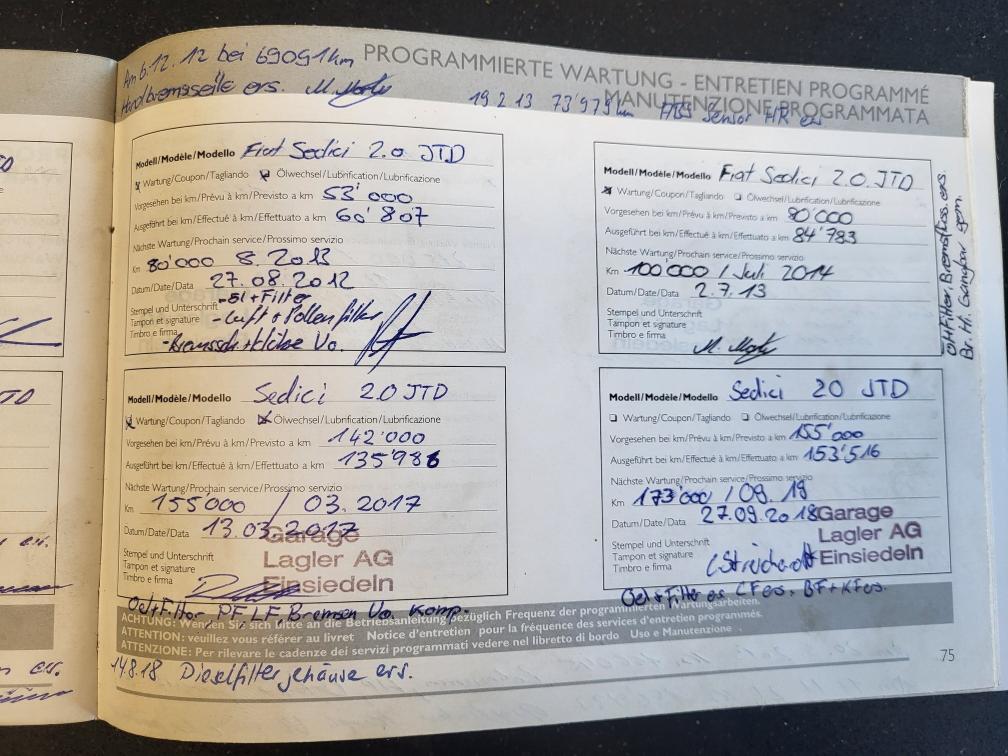 Am 6.12.12 bei 69091km
Handbremsseile ers.
PROGRAMMIERTE WARTUNG - ENTRETIEN PROGRAMMÉ
MANUTENZIONE PROGRAMMATA
19 2 13 73'979km ABS Sensor HR ers
Modell/Modèle/Modello Fiat Sedici 2.0 JTD
Wartung/Coupon/Tagliando Ölwechsel/Lubrification/Lubrificazione
Vorgesehen bei km/Prévu à km/Previsto a km 53'000
Ausgeführt bei km/Effectué à km/Effettuato a km 60'807
Nächste Wartung/Prochain service/Prossimo servizio
Km 80'000 8.2013
Datum/Date/Data 27.08.2012
Stempel und Unterschrift
Tampon et signature
Timbro e firma
-Öl+Filter
-Luft+Pollenfilter
Vo.
Modell/Modèle/Modello Fiat Sedici 2.0 JTD
Wartung/Coupon/Tagliando Ölwechsel/Lubrification/Lubrificazione
Vorgesehen bei km/Prévu à km/Previsto a km 80'000
Ausgeführt bei km/Effectué à km/Effettuato a km 84'783
Nächste Wartung/Prochain service/Prossimo servizio
Km 100'000 / Juli 2014
Datum/Date/Data 2.7.13
Stempel und Unterschrift
Tampon et signature
Timbro e firma
Öl+Filter, Bremsflüss. ers.
Br. Hi. gangbar gem.
Modell/Modèle/Modello Sedici 2.0 JTD
Wartung/Coupon/Tagliando Ölwechsel/Lubrification/Lubrificazione
Vorgesehen bei km/Prévu à km/Previsto a km 142'000
Ausgeführt bei km/Effectué à km/Effettuato a km 135986
Nächste Wartung/Prochain service/Prossimo servizio
Km 155'000 / 03.2017
Datum/Date/Data 13.03.2017
Stempel und Unterschrift
Tampon et signature
Timbro e firma
Garage
Lagler AG
Einsiedeln
Oel+Filter, PF, LF, Bremsen Vo. Komp.
Modell/Modèle/Modello Sedici 20 JTD
Wartung/Coupon/Tagliando Ölwechsel/Lubrification/Lubrificazione
Vorgesehen bei km/Prévu à km/Previsto a km 155'000
Ausgeführt bei km/Effectué à km/Effettuato a km 153'516
Nächste Wartung/Prochain service/Prossimo servizio
Km 173'000 / 09.19
Datum/Date/Data 27.09.2018
Stempel und Unterschrift
Tampon et signature
Timbro e firma
Garage
Lagler AG
Einsiedeln
Oel+Filter es LF es. BF+KF es.
ACHTUNG: Wenden Sie sich bitte an die Betriebsanleitung bezüglich Frequenz der programmierten Wartungsarbeiten.
ATTENTION: veuillez vous référer au livret Notice d'entretien pour la fréquence des services d'entretien programmés.
ATTENZIONE: Per rilevare le cadenze dei servizi programmati vedere nel libretto di bordo Uso e Manutenzione.
75
14.8.18 Dieselfiltergehäuse ers.